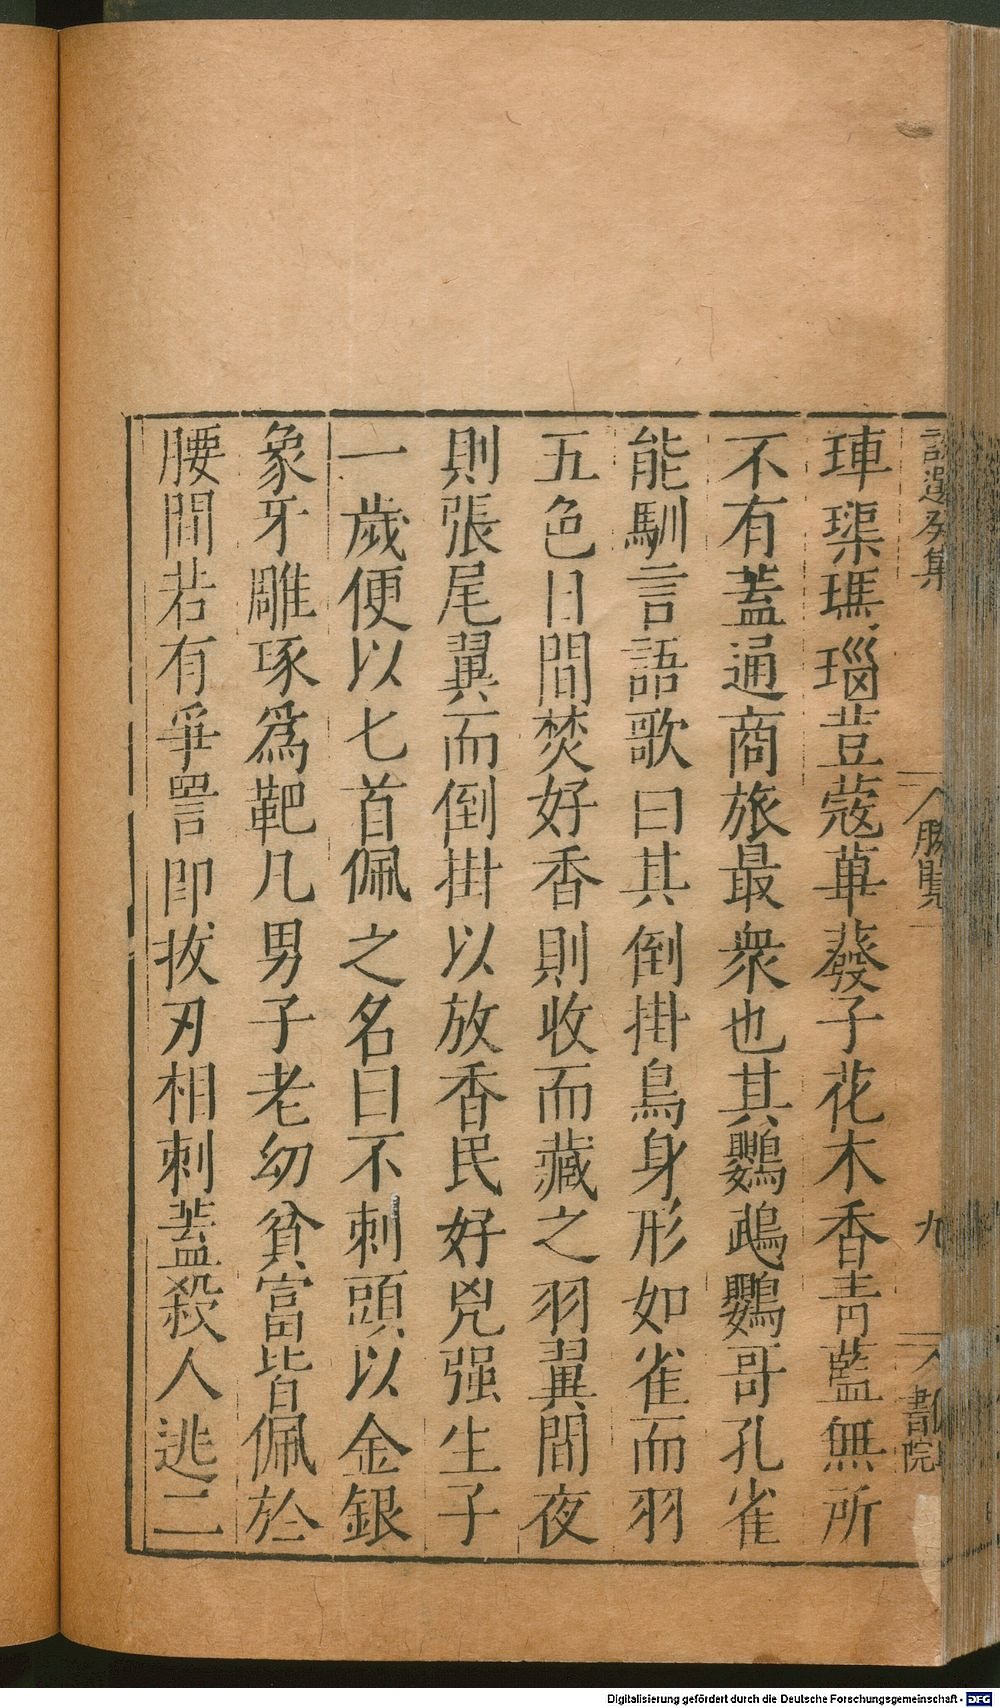 勝覽
九
書院
硨磲瑪瑙荳蔻蓽蕟子花木香青藍無所
不有蓋通商旅最衆也其鸚鵡鸚哥孔雀
能馴言語歌曰其倒掛鳥身形如雀而羽
五色日間焚好香則收而藏之羽翼間夜
則張尾翼而倒掛以放香民好兇强生子
一歲便以七首佩之名曰不刺頭以金銀
象牙雕琢爲靶凡男子老幼貧富皆佩於
腰間若有爭詈即拔刃相刺蓋殺人逃二
Digitalisierung gefördert durch die Deutsche Forschungsgemeinschaft - DFG